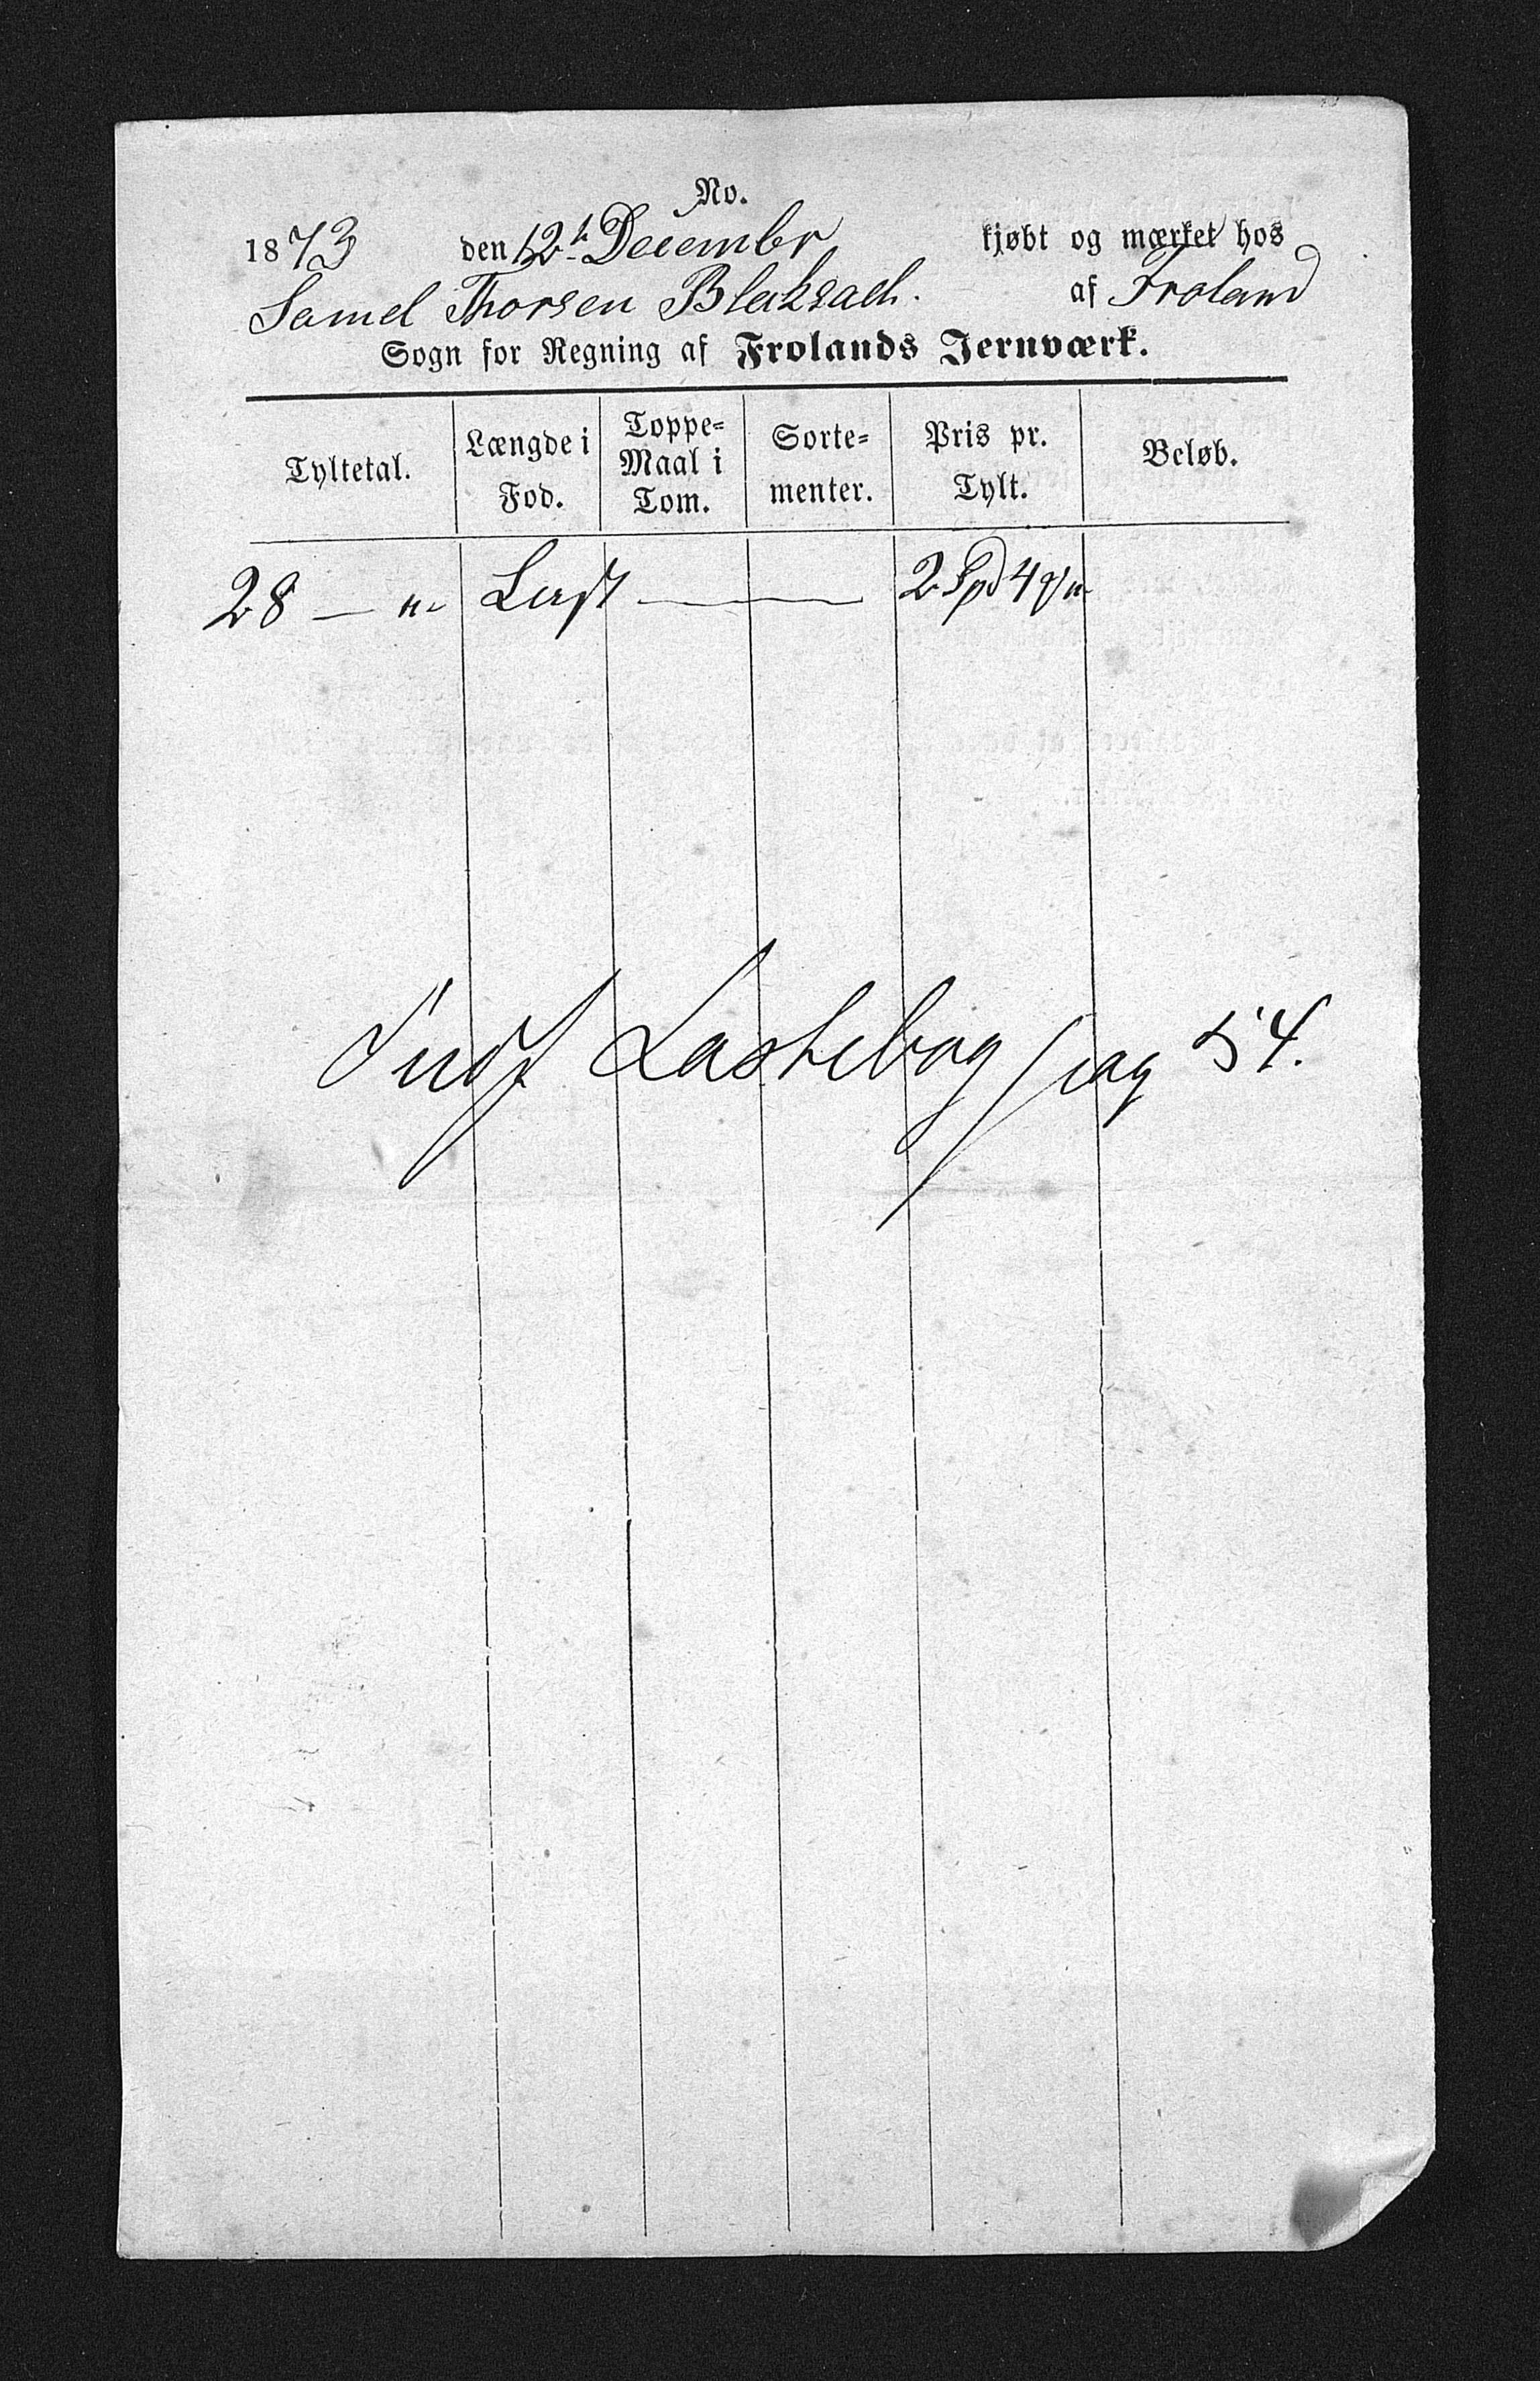 No.
1873 den 12te Decembr kjøbt og mærket hos
Samel Thorsen Blaksael. af Froland
Sogn for Regning af Frolands Jernværk.
Tyltetal. Længde i Fod. Toppe-Maal i Tom. Sorte-menter. Pris pr. Tylt. Beløb.
28 — „ Last — 2 Spd 4
Indf Lastebog pag 54.